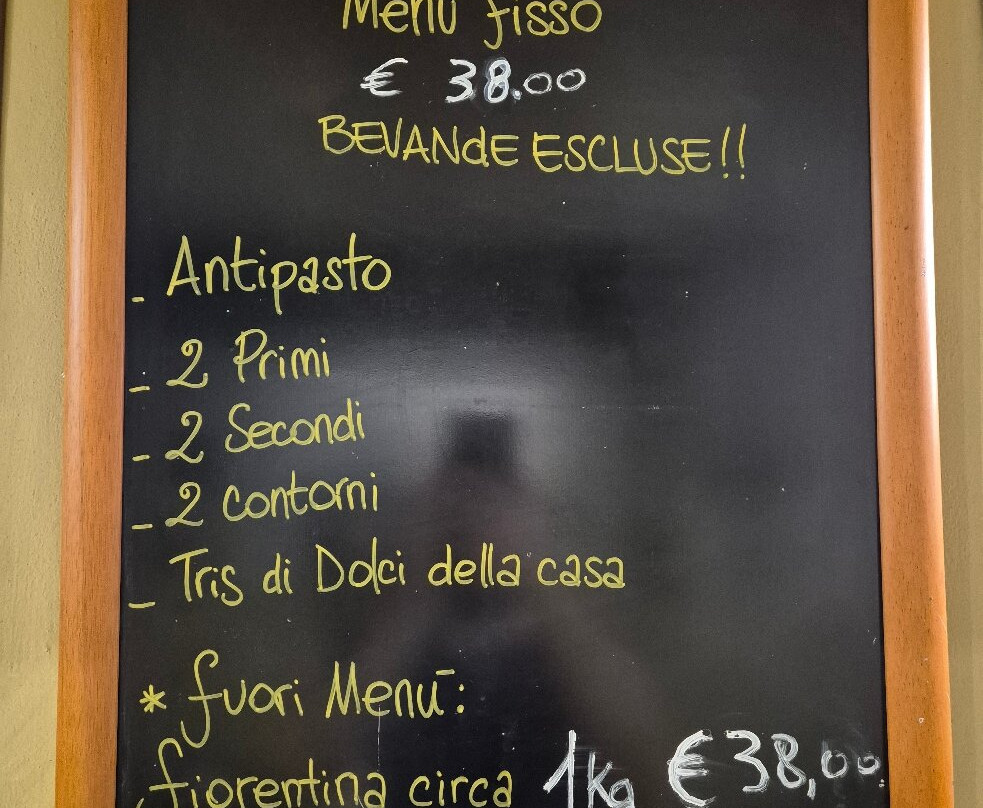 Menù fisso
€ 38.00
BEVANdE ESCLUSE!!
- Antipasto
- 2 Primi
- 2 Secondi
- 2 contorni
- Tris di Dolci della casa
* fuori Menù:
fiorentina circa 1Kg € 38,00